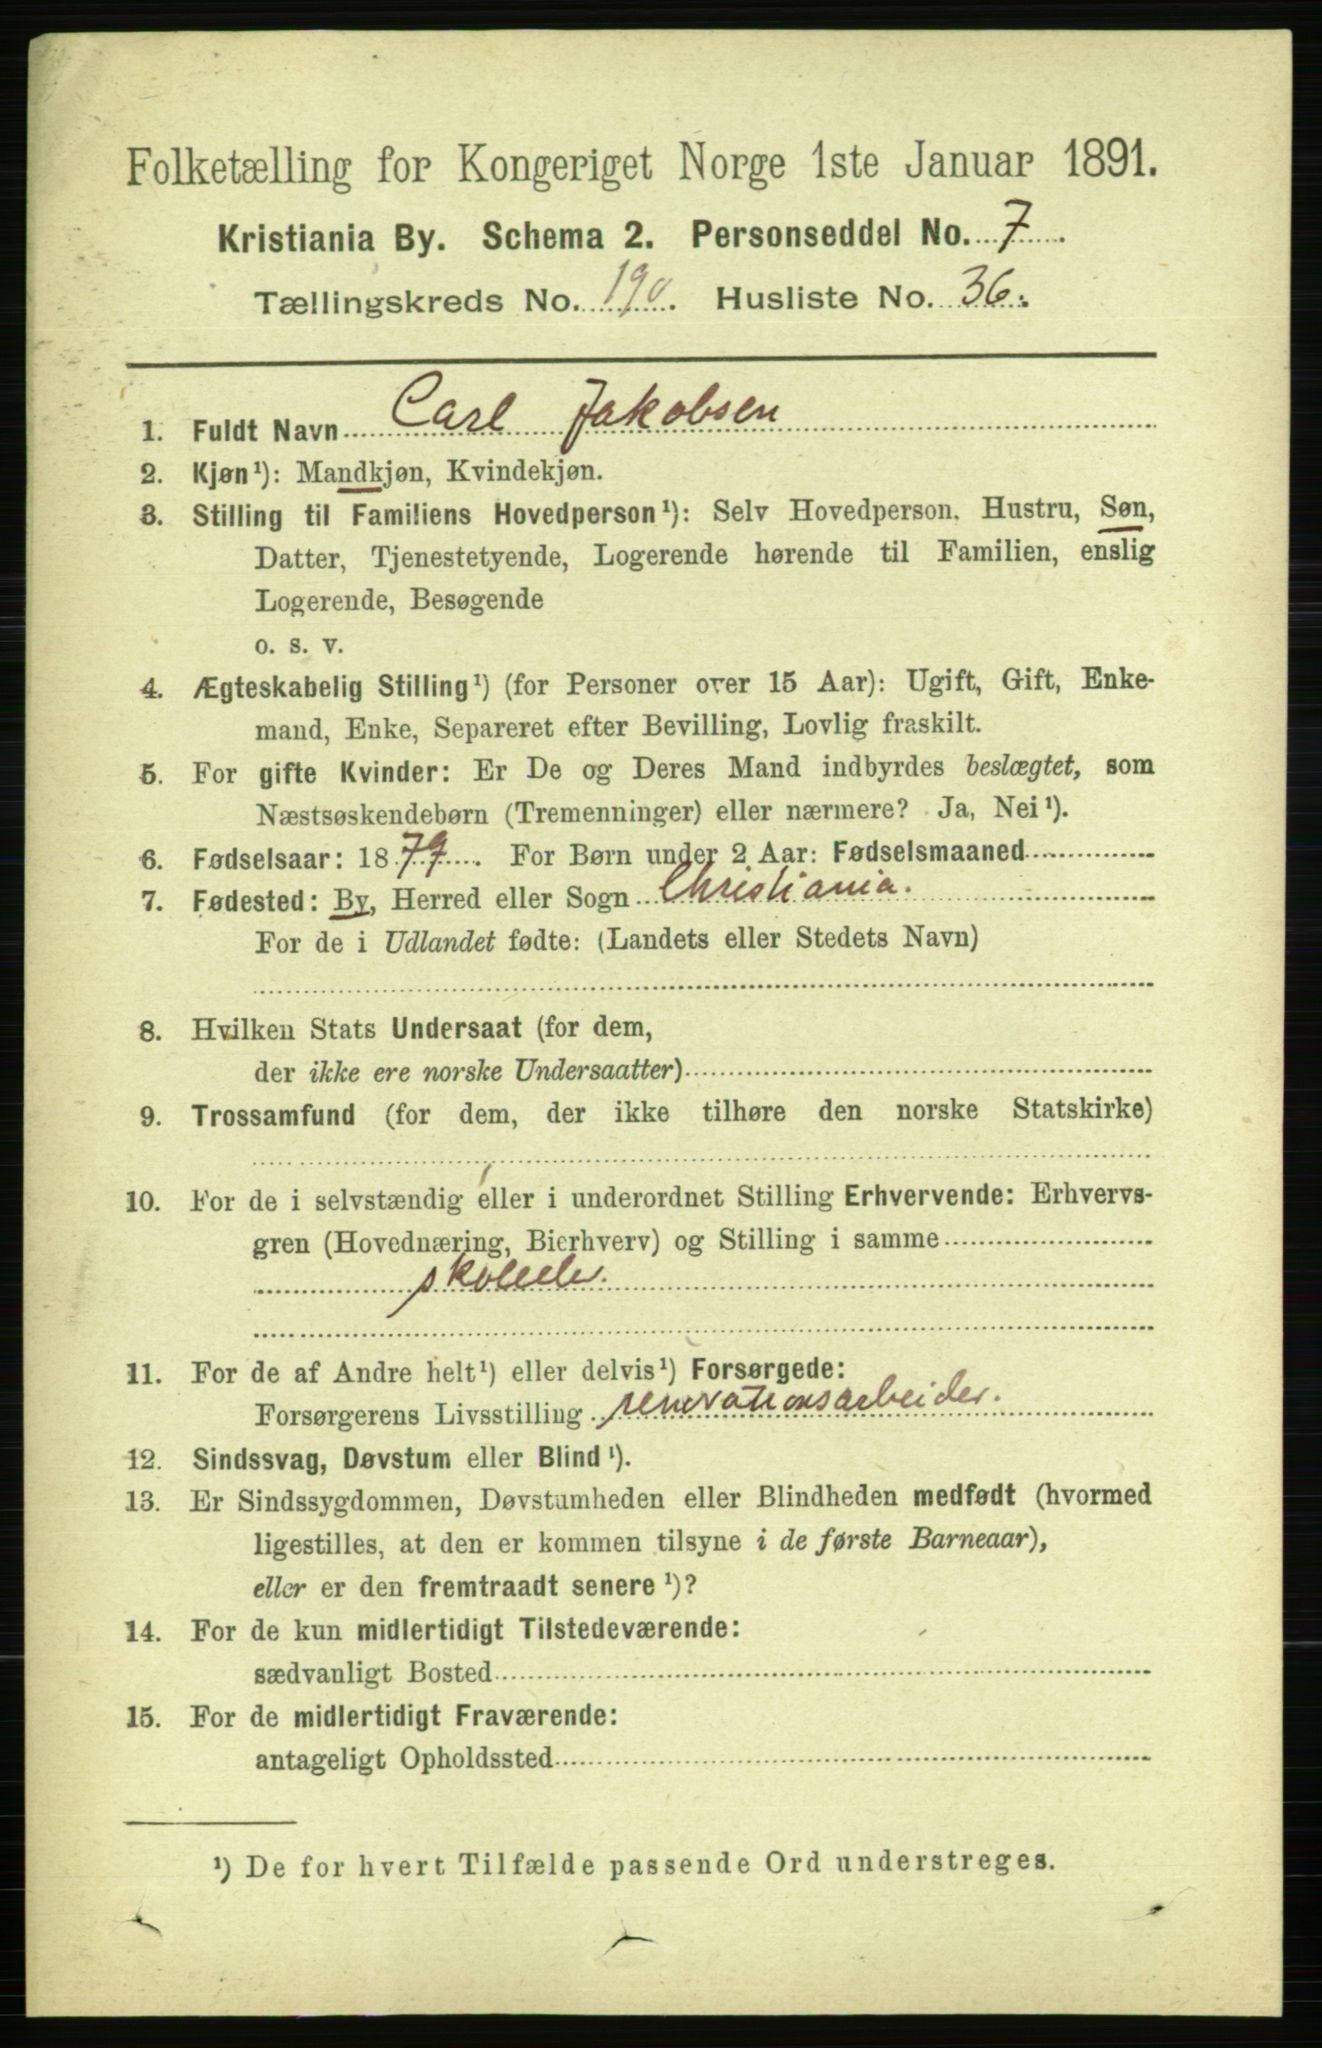 Folketælling for Kongeriget Norge 1ste Januar 1891.
Kristiania By. Schema 2. Personseddel No. 7
Tællingskreds No. 190. Husliste No. 36.
1. Fuldt Navn Carl Jakobsen
2. Kjøn¹): Mandkjøn, Kvindekjøn.
3. Stilling til Familiens Hovedperson¹): Selv Hovedperson, Hustru, Søn,
Datter, Tjenestetyende, Logerende hørende til Familien, enslig
Logerende, Besøgende
o. s. v.
4. Ægteskabelig Stilling¹) (for Personer over 15 Aar): Ugift, Gift, Enke-
mand, Enke, Separeret efter Bevilling, Lovlig fraskilt.
5. For gifte Kvinder: Er De og Deres Mand indbyrdes beslægtet, som
Næstsøskendebørn (Tremenninger) eller nærmere? Ja, Nei¹).
6. Fødselsaar: 1879. For Børn under 2 Aar: Fødselsmaaned
7. Fødested: By, Herred eller Sogn Christiania.
For de i Udlandet fødte: (Landets eller Stedets Navn)
8. Hvilken Stats Undersaat (for dem,
der ikke ere norske Undersaatter)
9. Trossamfund (for dem, der ikke tilhøre den norske Statskirke)
10. For de i selvstændig eller i underordnet Stilling Erhvervende: Erhvervs-
gren (Hovednæring, Bierhverv) og Stilling i samme
skoleelev.
11. For de af Andre helt¹) eller delvis¹) Forsørgede:
Forsørgerens Livsstilling renovationsarbeider.
12. Sindssvag, Døvstum eller Blind¹).
13. Er Sindssygdommen, Døvstumheden eller Blindheden medfødt (hvormed
ligestilles, at den er kommen tilsyne i de første Barneaar),
eller er den fremtraadt senere¹)?
14. For de kun midlertidigt Tilstedeværende:
sædvanligt Bosted
15. For de midlertidigt Fraværende:
antageligt Opholdssted
¹) De for hvert Tilfælde passende Ord understreges.